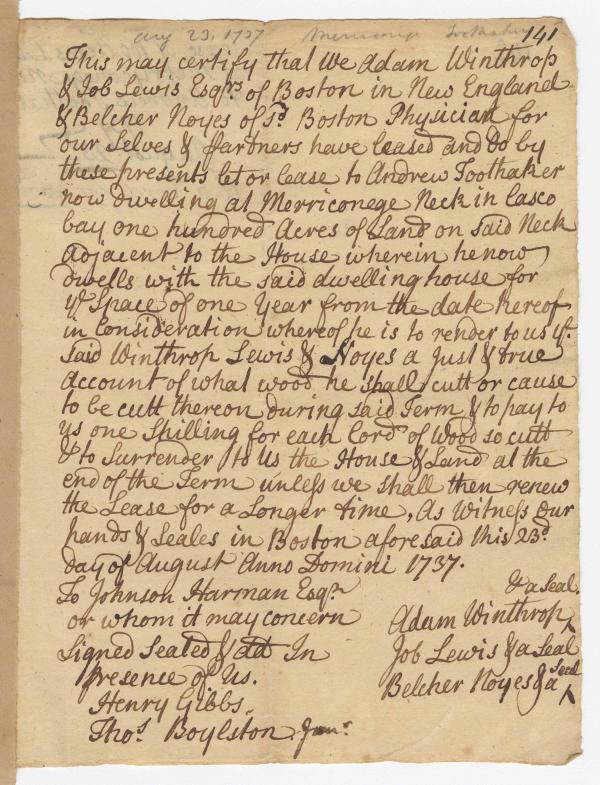 Aug 23, 1737 Merriconege Toothaker 141
This may certify that We Adam Winthrop
& Job Lewis Esqrs of Boston in New England
& Belcher Noyes of sd Boston Physician for
our Selves & Partners have leased and do by
these presents let or lease to Andrew Toothaker
now dwelling at Merriconege Neck in Casco
bay one hundred Acres of Land on said Neck
Adjacent to the House wherein he now
dwells with the said dwelling house for
ye Space of one Year from the date hereof
in Consideration whereof he is to render to us ye
said Winthrop Lewis & Noyes a Just & true
Account of what wood he shall cutt or cause
to be cutt thereon during said Term & to pay to
us one Shilling for each Cord of Wood so cutt
& to Surrender to Us the House & Land at the
end of the Term unless we shall then renew
the Lease for a Longer time, As Witness Our
hands & Seales in Boston aforesaid this 23d
day of August Anno Domini 1737.
To Johnson Harman Esqr
or whom it may concern
Signed Sealed & dd In
presence of Us.
Henry Gibbs.
Thos. Boylston Junr
& a Seal.
Adam Winthrop
Job Lewis & a Seal
Belcher Noyes & a Seal